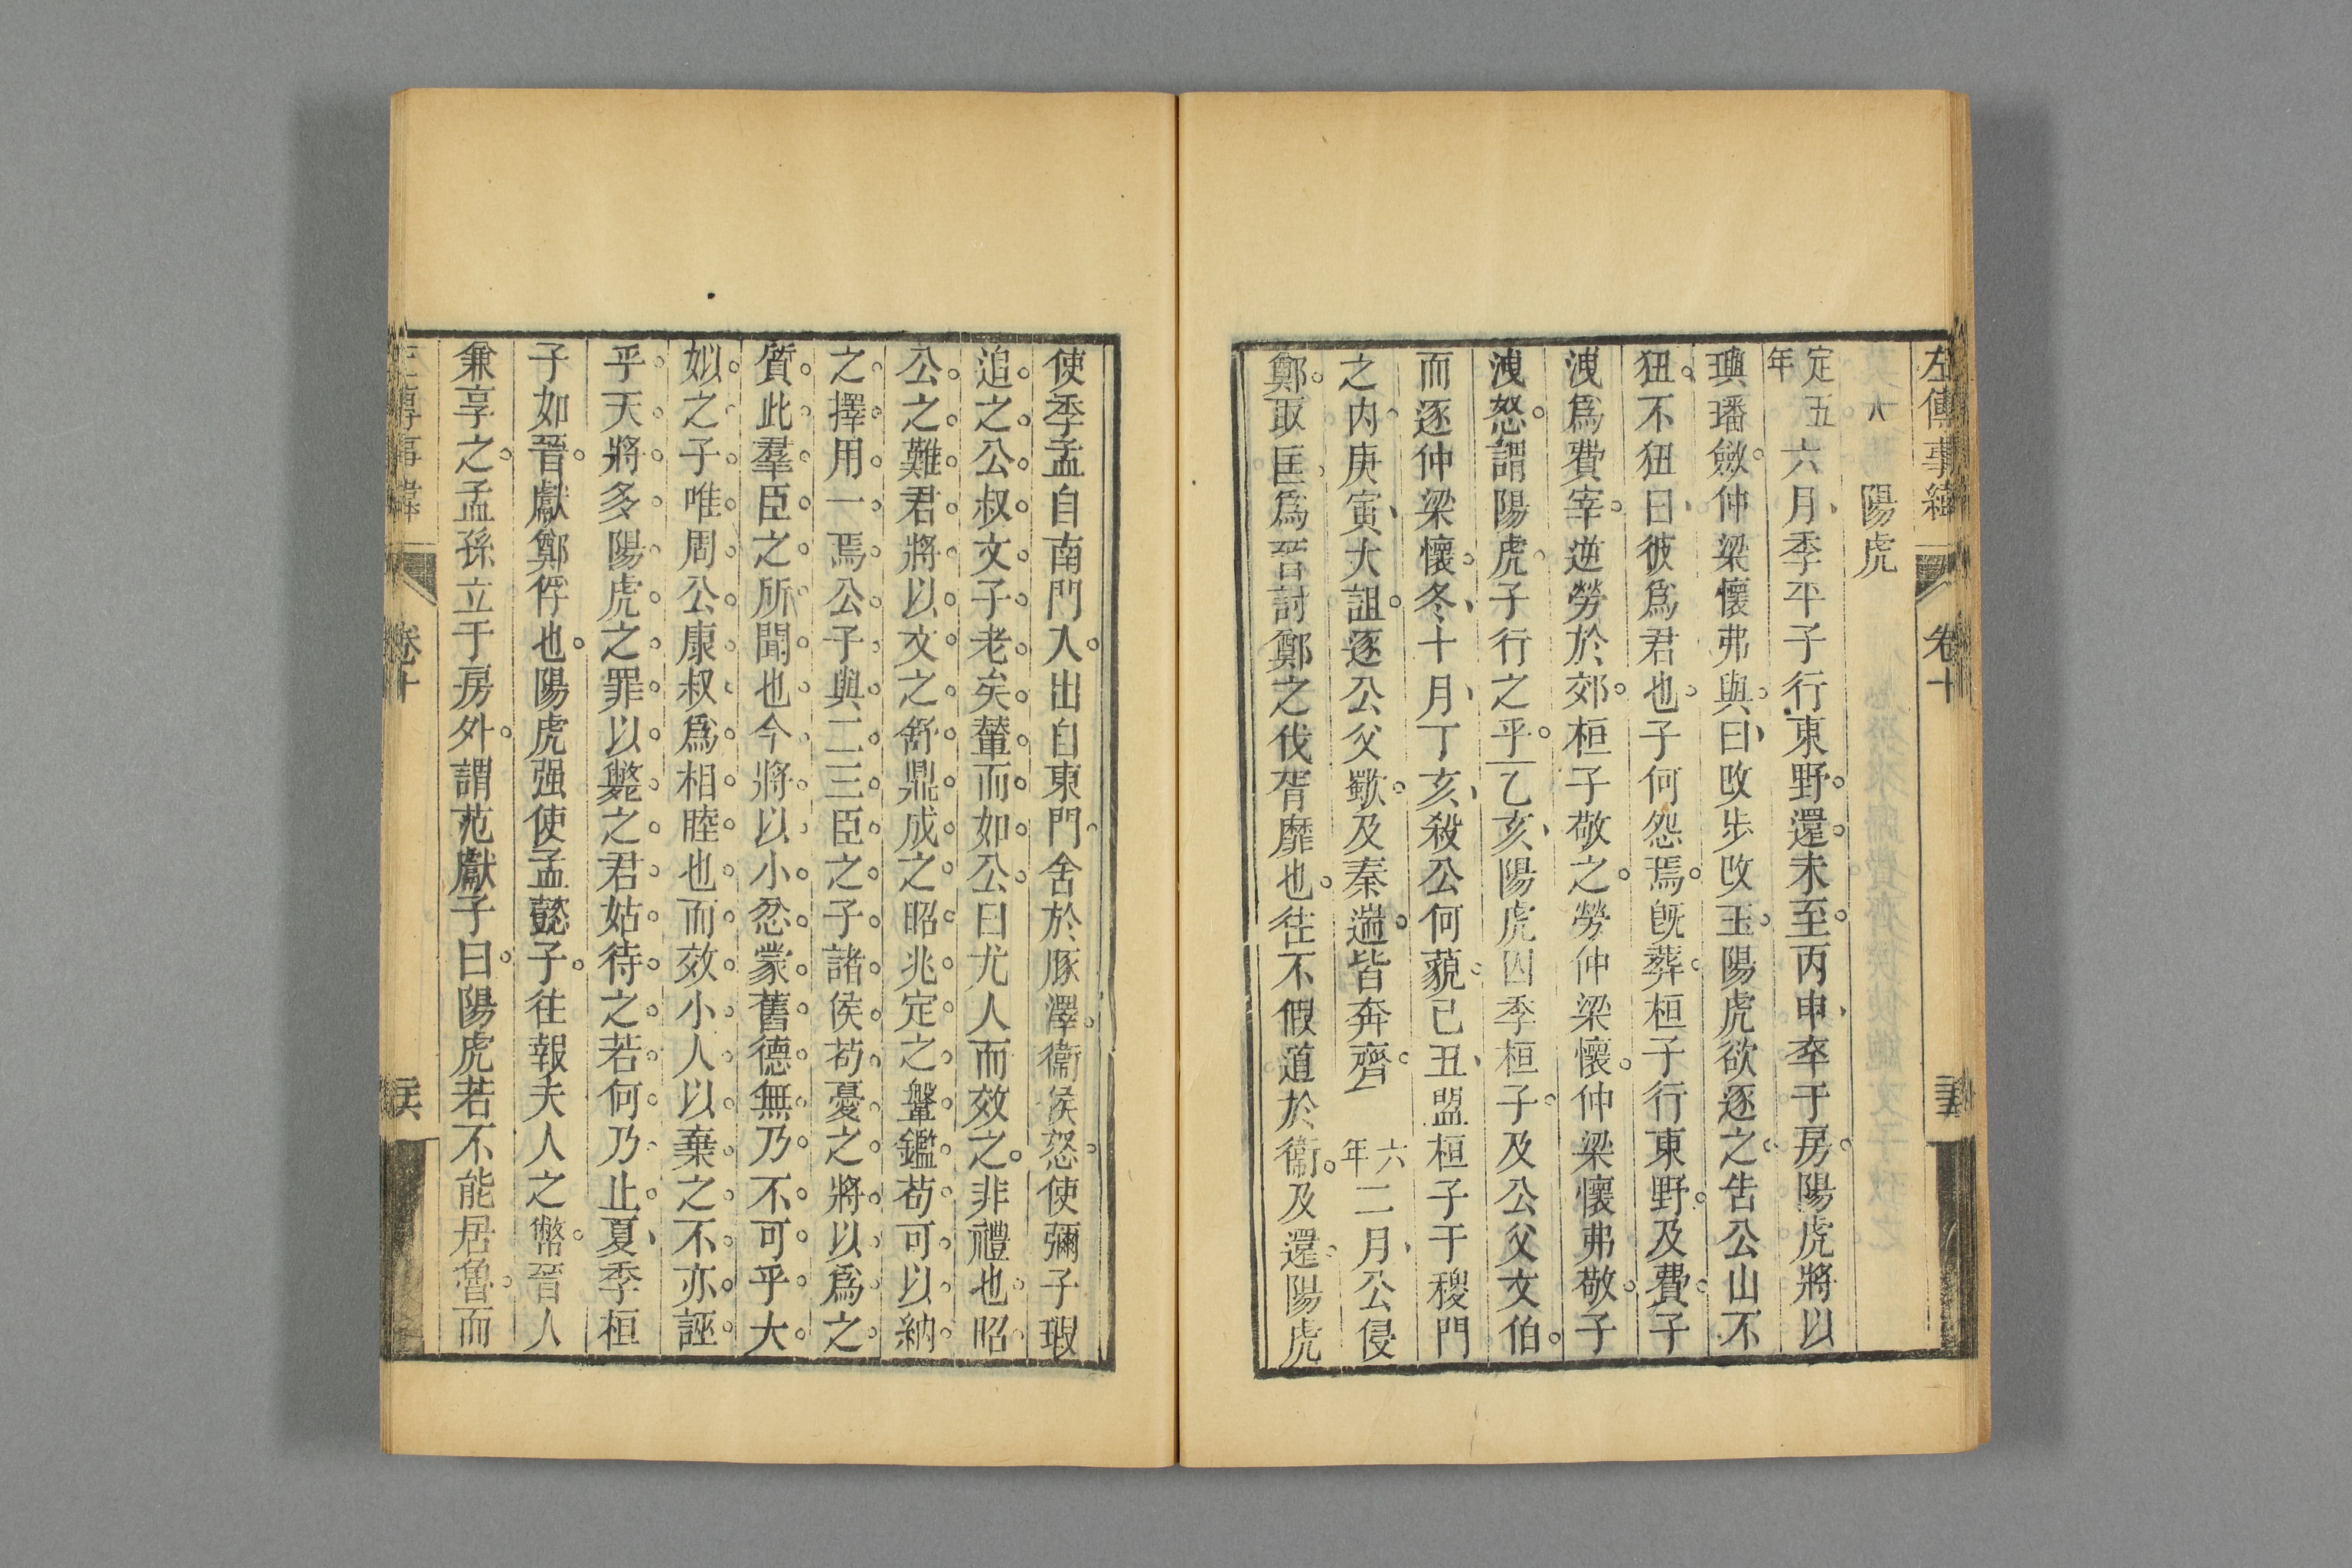 左傳事緯
卷十
陽虎
定五年六月季平子行東野還未至丙申卒于房陽虎將以
璵璠斂仲梁懷弗與曰改步改玉陽虎欲逐之告公山不
狃不狃曰彼爲君也子何怨焉旣葬桓子行東野及費子
洩爲費宰逆勞於郊桓子敬之勞仲梁懷仲梁懷弗敬子
洩怒謂陽虎子行之乎乙亥陽虎囚季桓子及公父文伯
而逐仲梁懷冬十月丁亥殺公何藐己丑盟桓子于稷門
之內庚寅大詛逐公父歜及秦遄皆奔齊六年二月公侵
鄭取匡爲晉討鄭之伐胥靡也往不假道於衞及還陽虎
使季孟自南門入出自東門舍於豚澤衞侯怒使彌子瑕
追之公叔文子老矣輦而如公曰尤人而效之非禮也昭
公之難君將以文之舒鼎成之昭兆定之鞶鑑苟可以納
之擇用一焉公子與二三臣之子諸侯苟憂之將以爲之
質此羣臣之所聞也今將以小忿蒙舊德無乃不可乎大
姒之子唯周公康叔爲相睦也而效小人以棄之不亦誣
乎天將多陽虎之罪以斃之君姑待之若何乃止夏季桓
子如晉獻鄭俘也陽虎强使孟懿子往報夫人之幣晉人
兼享之孟孫立于房外謂范獻子曰陽虎若不能居魯而
左傳事緯
卷十